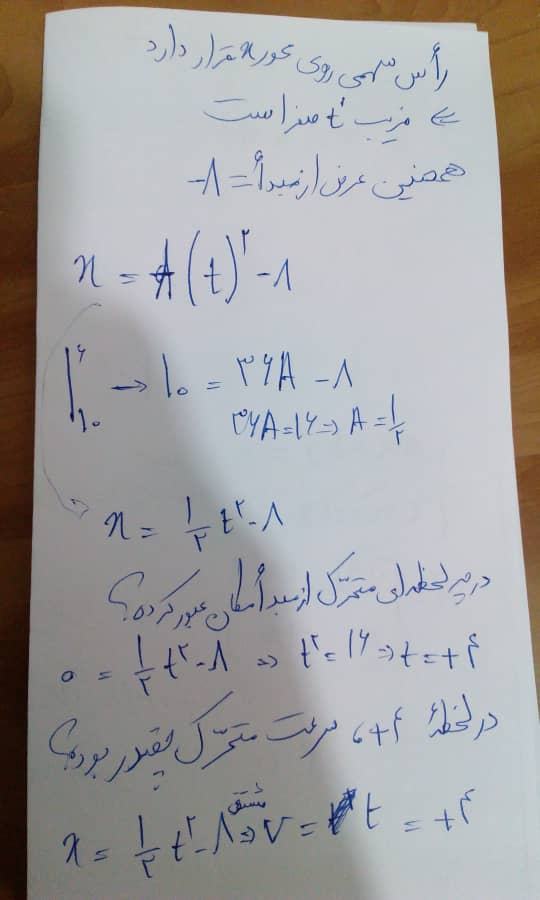 رأس سهمی روی محور x قرار دارد
⇐ ضریب t صفر است
همچنین عرض از مبدأ = ۸-
x = A(t)^۲ - ۸
|۶ ۱۰ → ۱۰ = ۳۶A - ۸
۳۶A = ۱۶ ⇒ A = ۱/۲
x = ۱/۲ t^۲ - ۸
در چه لحظه‌ای متحرّک از مبدأ مکان عبور کرده؟
۰ = ۱/۲ t^۲ - ۸ ⇒ t^۲ = ۱۶ ⇒ t = +۴
در لحظهٔ ۴+، سرعت متحرّک چقدر بوده؟
x = ۱/۲ t^۲ - ۸ ⇒ مشتق V = t = +۴